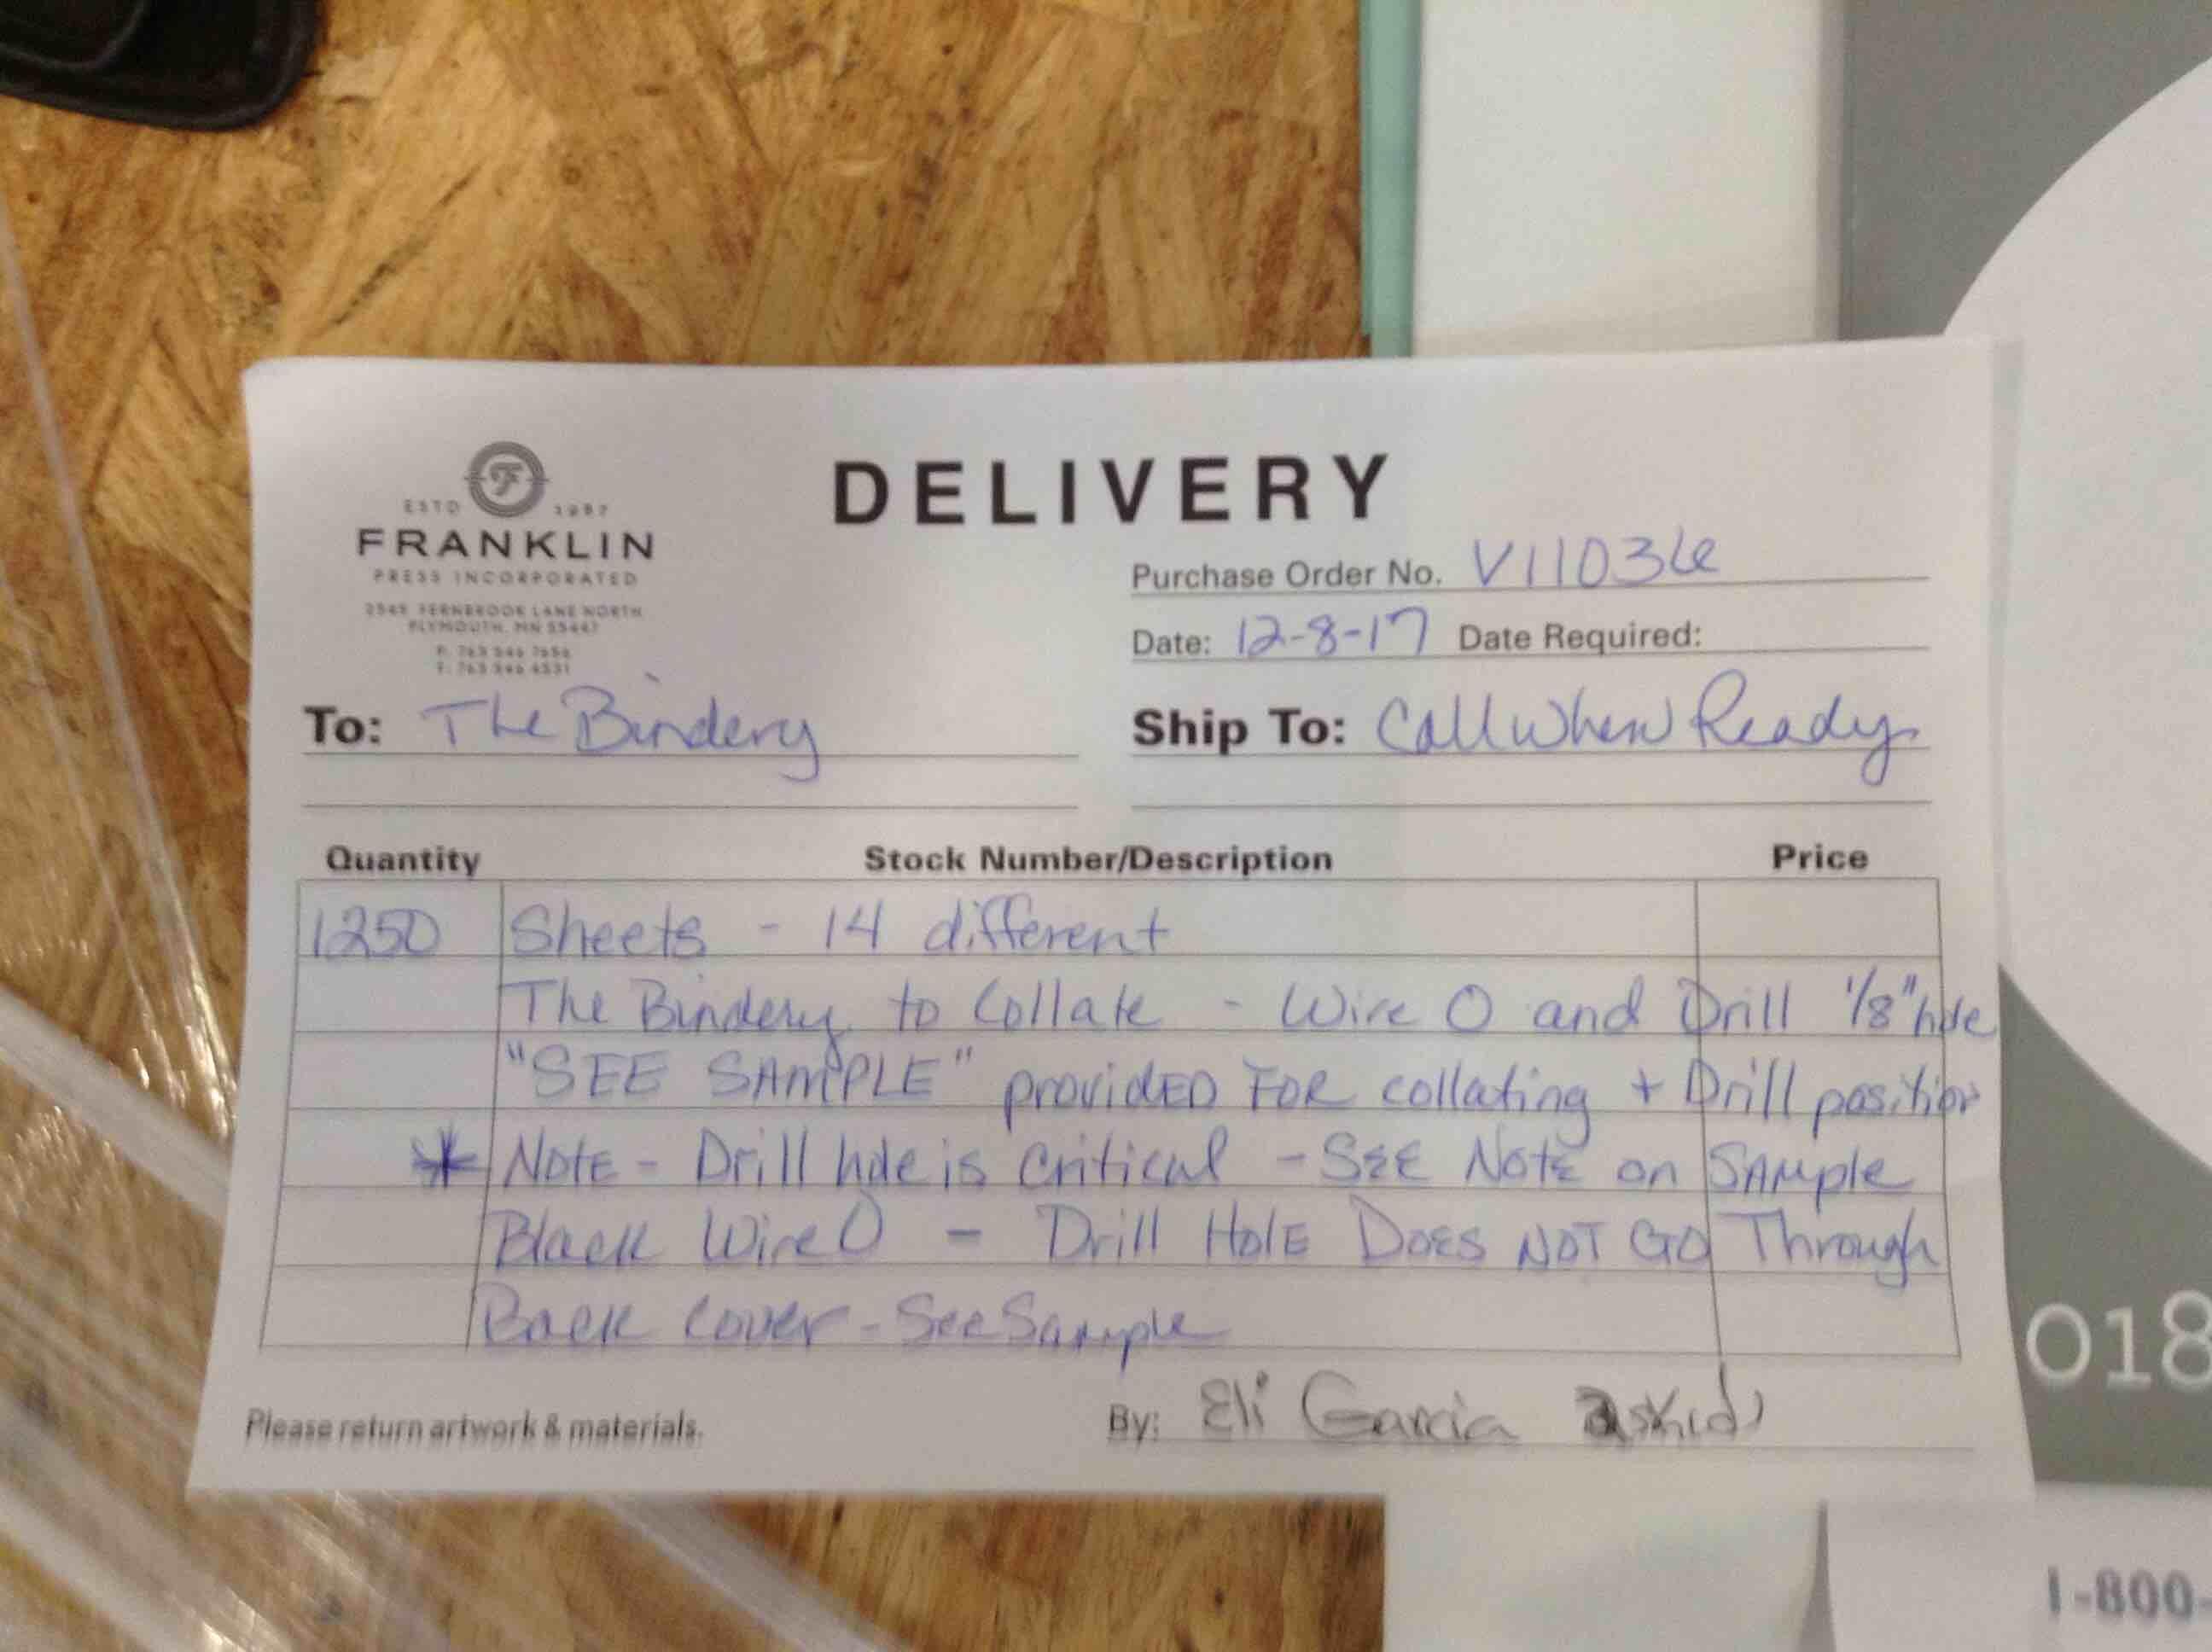 DELIVERY
F
ESTD 1987
FRANKLIN
PRESS INCORPORATED
2545 FERNBROOK LANE NORTH
PLYMOUTH, MN 55447
P: 763 546 7656
Purchase Order No. V11036
Date: 12-8-17 Date Required:
To: The Bindery
Ship To: Call When Ready
Quantity Stock Number/Description Price
1250 Sheets - 14 different
The Bindery to Collate - Wire O and Drill 1/8" hole
"SEE SAMPLE" provided FOR collating + Drill position
* Note - Drill hole is critical - SEE Note on Sample
Black Wire O - Drill Hole Does NOT GO Through
Back cover - See Sample
Please return artwork & materials.
By: Eli Garcia
018
1-800-